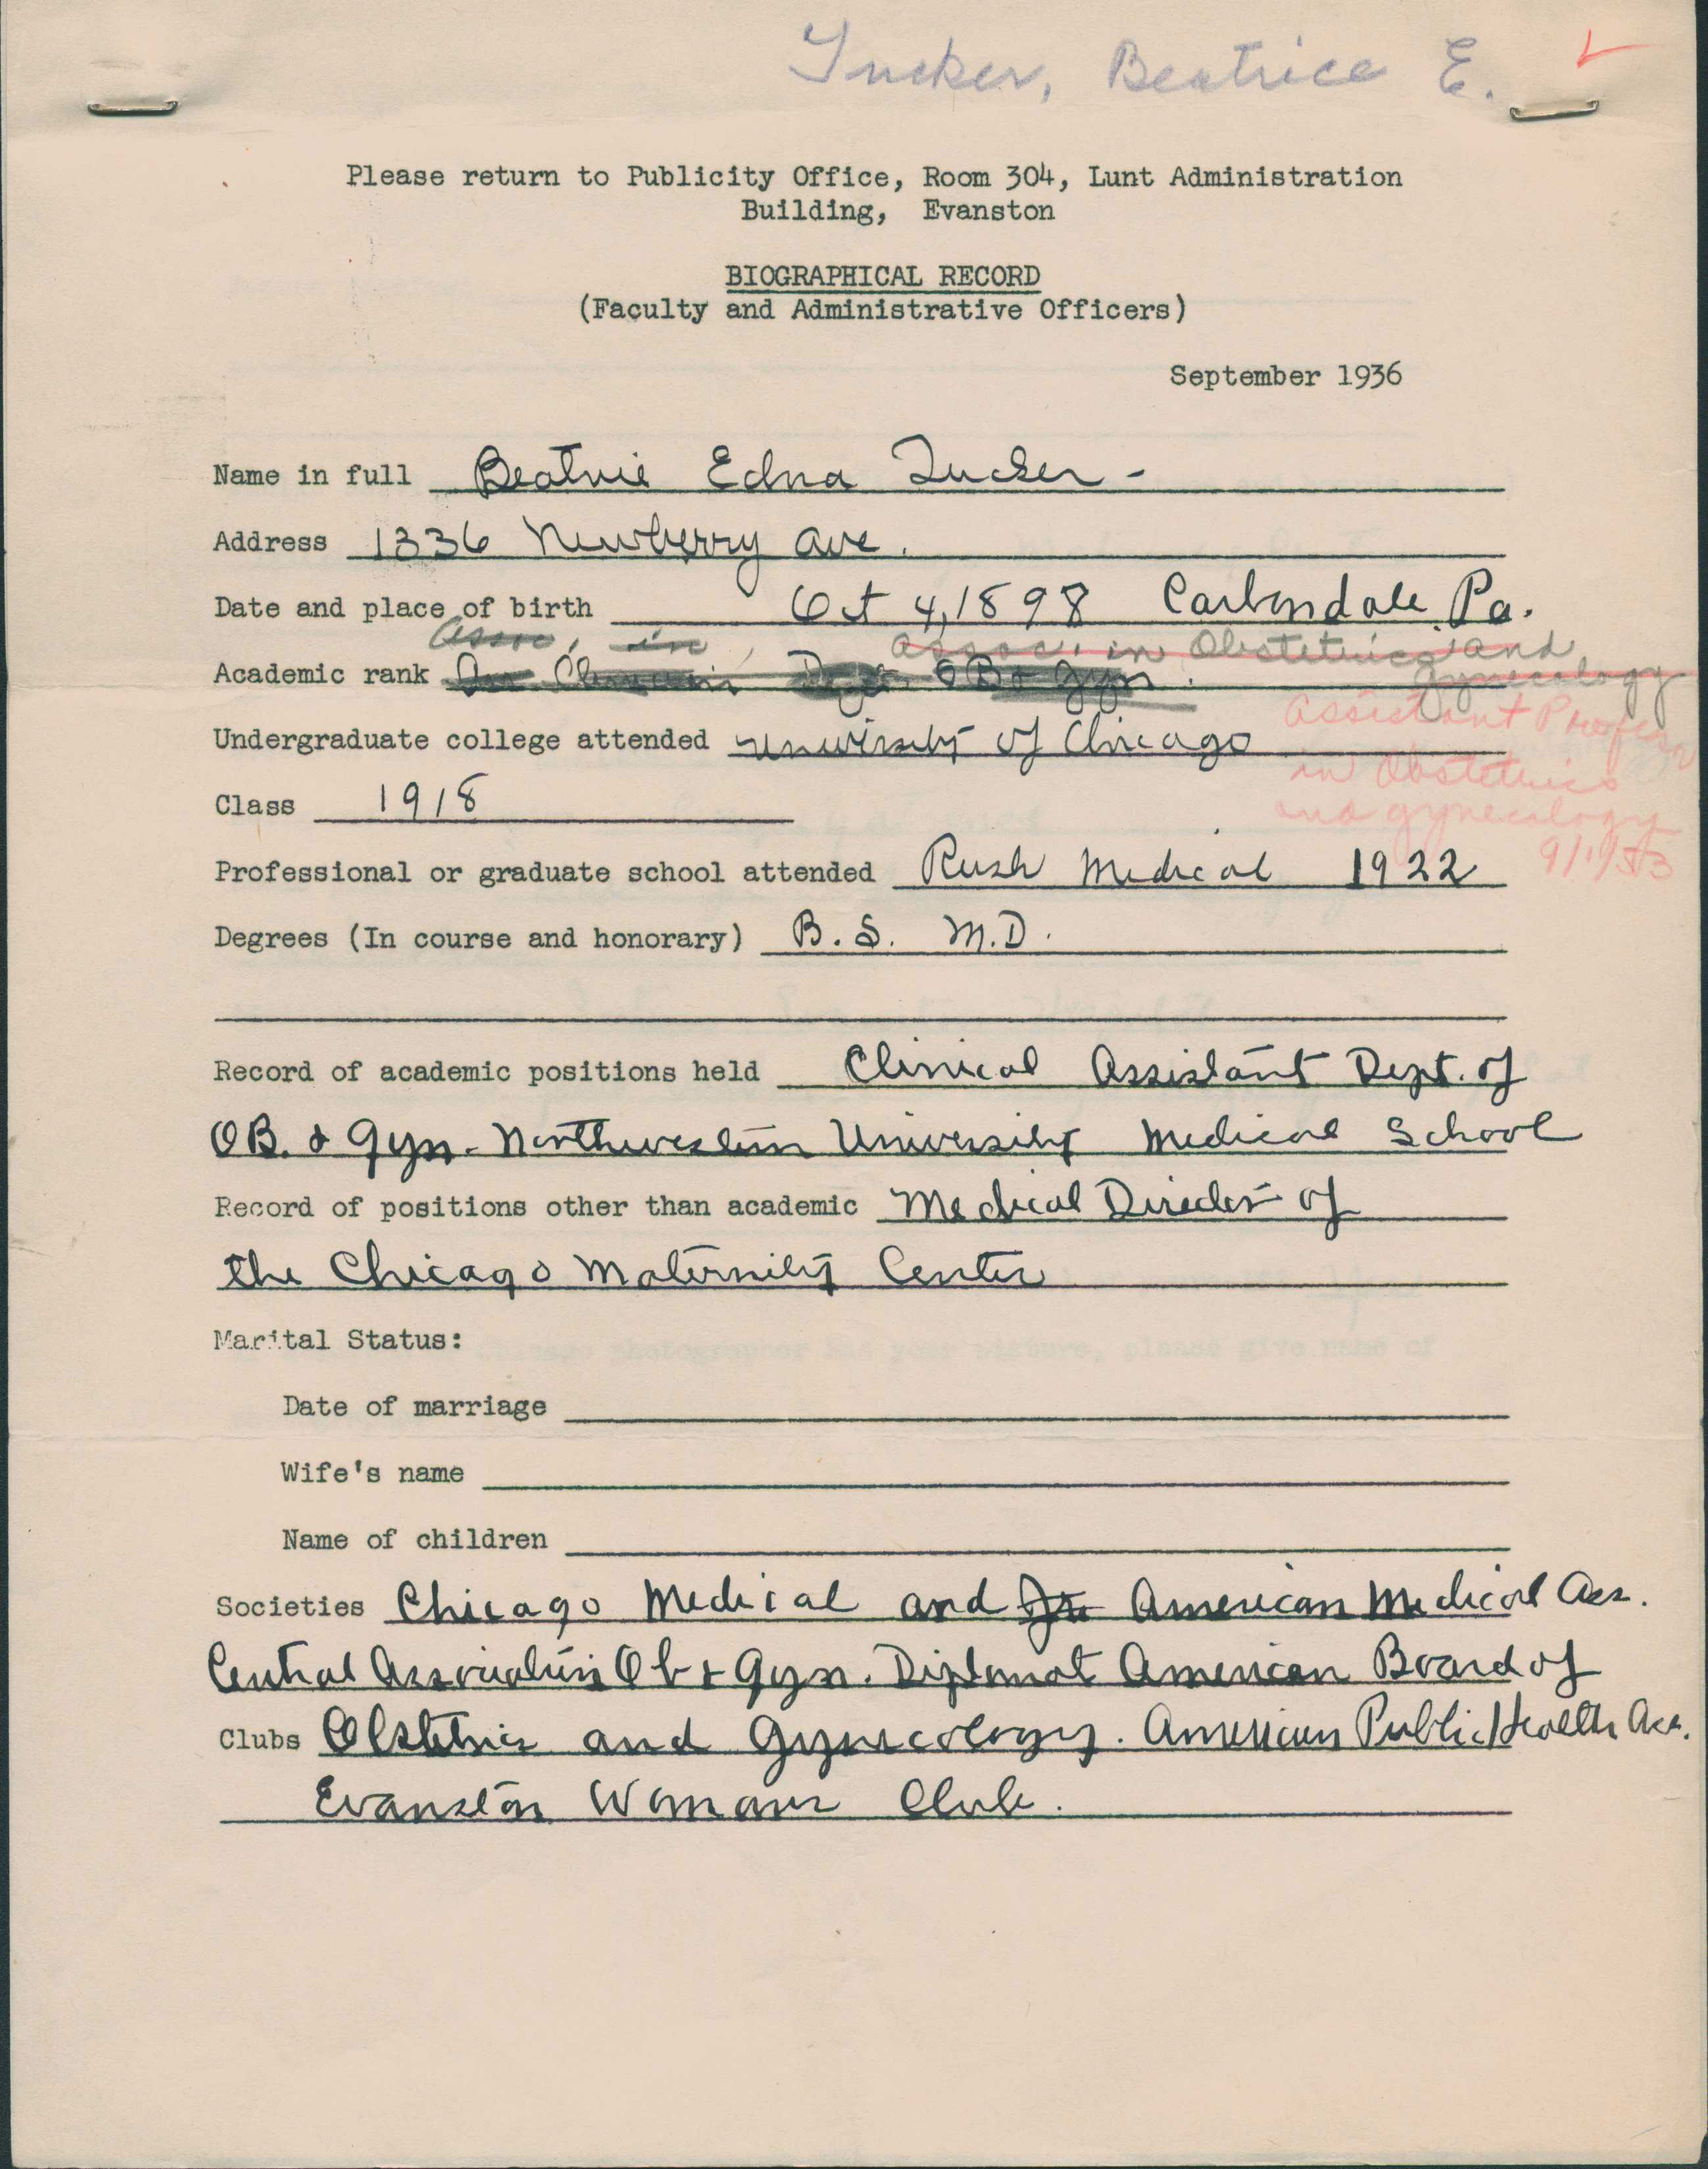 Tucker, Beatrice E.
Please return to Publicity Office, Room 304, Lunt Administration
Building, Evanston
BIOGRAPHICAL RECORD
(Faculty and Administrative Officers)
September 1936
Name in full Beatrice Edna Tucker -
Address 1336 Newberry Ave.
Date and place of birth Oct 4, 1898 Carbondale, Pa.
Assoc, in, Assoc. in Obstetrics and
Gynecology
Academic rank Dept. OB & Gyn.
Assistant Professor
Undergraduate college attended University of Chicago
in Obstetrics
Class 1918
and gynecology
9/1/53
Professional or graduate school attended Rush Medical 1922
Degrees (In course and honorary) B.S. M.D.
Record of academic positions held Clinical Assistant Dept. of
OB. & Gyn - Northwestern University Medical School
Record of positions other than academic Medical Director of
the Chicago Maternity Center
Marital Status:
Date of marriage
Wife's name
Name of children
Societies Chicago Medical and American Medical Ass.
Central Association Ob & Gyn. Diplomat American Board of
Clubs Obstetrics and Gynecology. American Public Health Ass.
Evanston Womans Club.